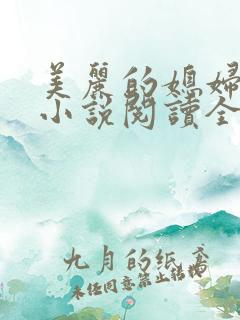 美麗的媳婦
小説閱讀全
九月的紙鳶
未经同意禁止转载